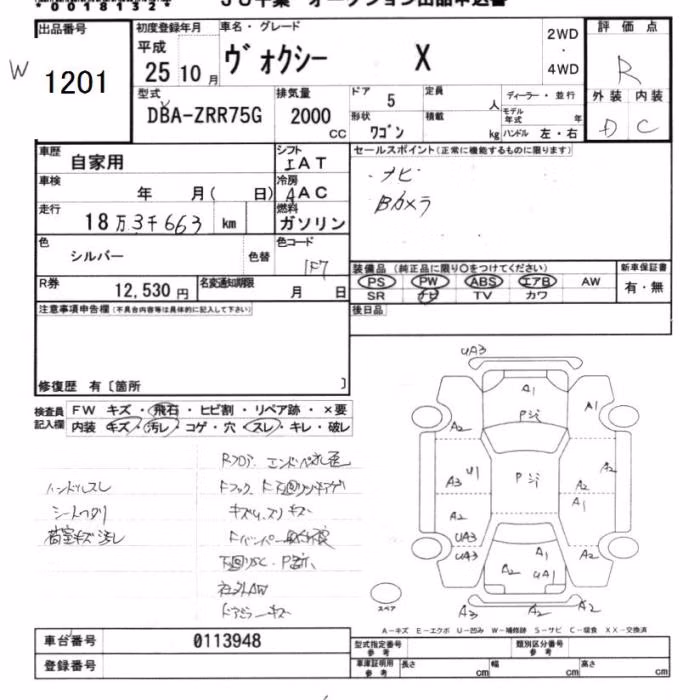 出品番号
W 1201
初度登録年月
平成
25 10月
車名・グレード
ヴォクシー X
2WD
・
4WD
評価点
R
型式
DBA-ZRR75G
排気量
2000
CC
ドア
5
定員
人
ディーラー・並行
モデル年式 年
形状
ワゴン
積載
kg
ハンドル 左・右
外装 内装
D C
車歴
自家用
シフト
IAT
車検
年 月( 日)
冷房
AAC
走行
18万3千663 km
燃料
ガソリン
色
シルバー
色替
色コード
1F7
R券
12,530円
名変通知期限
月 日
セールスポイント(正常に機能するものに限ります)
・ナビ
Bカメラ
装備品(純正品に限り○をつけてください)
PS PW ABS エアB AW
SR ナビ TV カワ
新車保証書
有・無
後日品
注意事項申告欄(不具合内容等は具体的に記入して下さい)
修復歴 有〔箇所 〕
検査員記入欄
FW キズ・飛石・ヒビ割・リペア跡・×要
内装 キズ・汚レ・コゲ・穴・スレ・キレ・破レ
ハンドルスレ
荷室キズ汚レ
キズ
社外AW
ドアミラーキズ
UA3
A1
Pジ
A1
A2
A3
U1
Pジ
A2
A2
A1
A2
UA3
UA3
A1
A2
UA1
A2
A3
A2
A2
スペア
A-キズ E-エクボ U-凹み W-補修跡 S-サビ C-腐食 XX-交換済
車台番号
0113948
登録番号
型式指定番号
参考
類別区分番号
参考
車庫証明用
参考
長さ cm
幅 cm
高さ cm